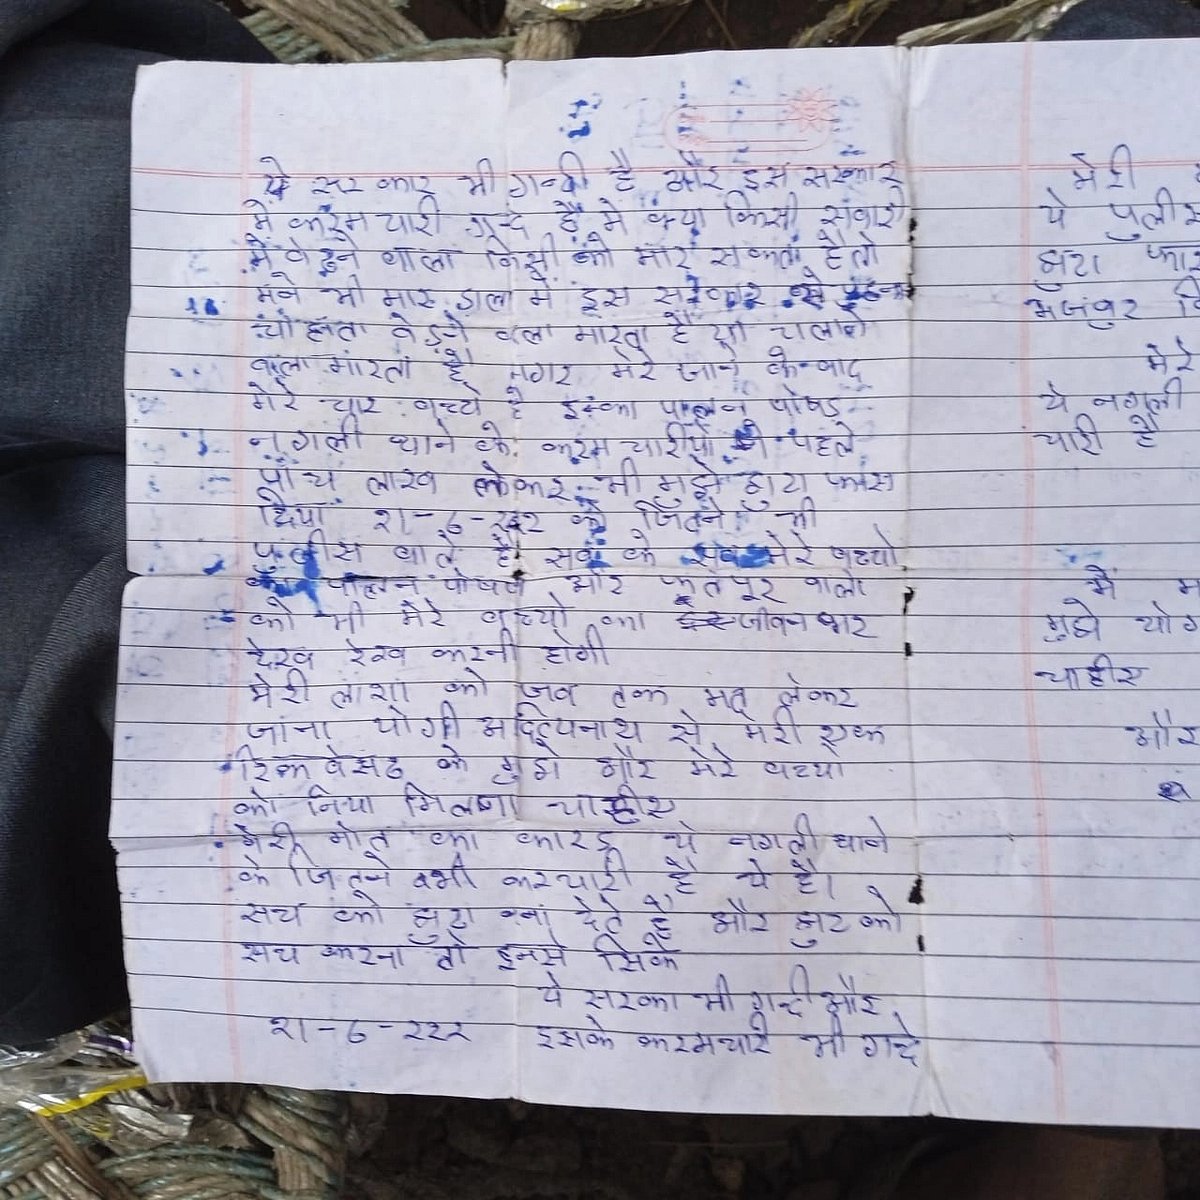 ये सरकार भी गन्दी है और इस सरकार
मे करमचारी गन्दे है मे क्या किसी संवारी
मे वेठने वाला किसी को मार सकता है तो
मेने भी मार डाला में इस सरकार से
चाहता वेठने वाला मारता है या चलाने
वाला मारता है। मगर मेरे जाने के बाद
मेरे चार बच्चे है इनका पालन पोषड
नगली थाने के करमचारीयो ने पहले
पाँच लाख लेकर भी मुझे झुटा फंसा
दिया २१-६- को जितने भी
पुलीस वाले है। सब के सब मेरे बच्चो
का पालन पोषण और फतेपूर वालो
को भी मेरे बच्चो का जीवन भर
देख रेख करनी होगी
मेरी लाश को जब तक मत लेकर
जाना योगी आदित्यनाथ से मेरी एक
रिकवेसट के मुझे और मेरे बच्चो
को निया मिलना चाहीए
मेरी मौत का कारड ये नगली थाने
के जितने वभी करचारी है ये है।
सच को झुटा बना देते है और झुट को
सच करना तो इनसे सिके
ये सरका भी गन्दी और
२१-६-२२२ इसके करमचारी भी गन्दे
मेरी
ये पुलीस
झुटा फास
मजबुर
मेरे
ये नगली
चारी है
मैं
मुझे योग
चाहीए
और